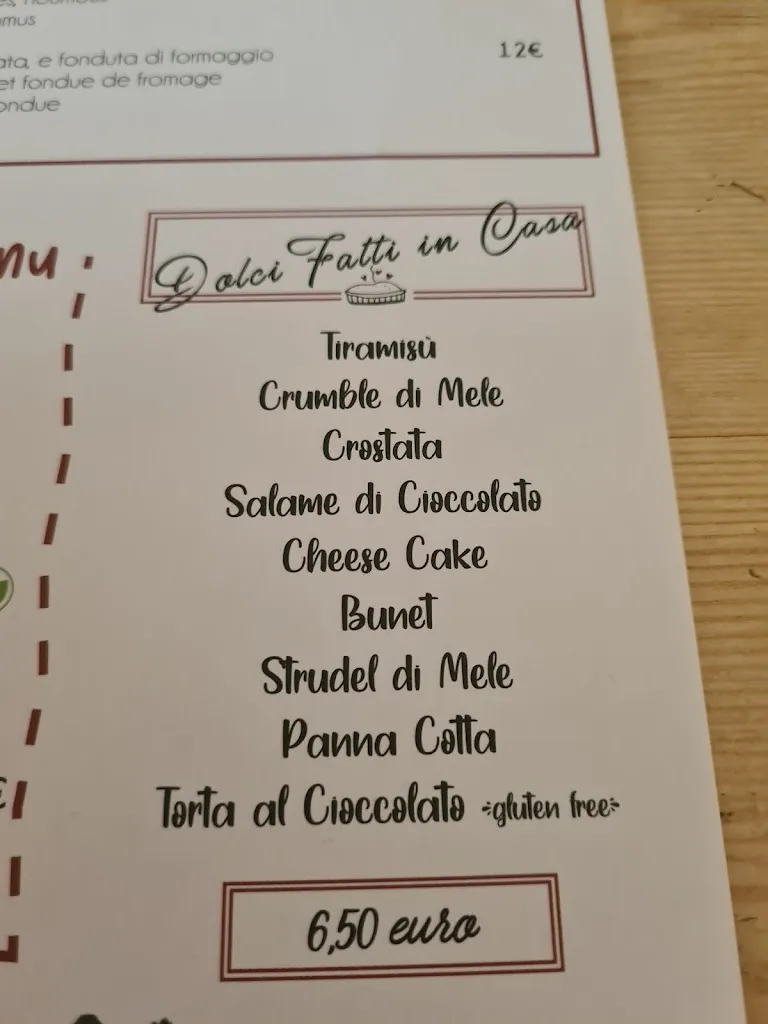 e fonduta di formaggio
et fondue de fromage
12€
Dolci Fatti in Casa
Tiramisù
Crumble di Mele
Crostata
Salame di Cioccolato
Cheese Cake
Bunet
Strudel di Mele
Panna Cotta
Torta al Cioccolato gluten free
6,50 euro